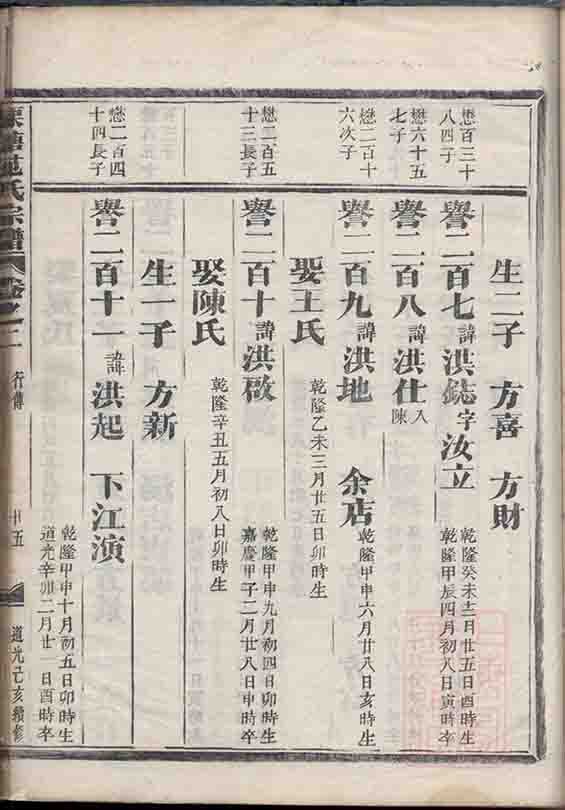 生二子 方喜 方財
懋百三十八四子
譽二百七 諱洪鋕 字汝立
乾隆癸未十二月廿五日酉時生
乾隆甲辰四月初八日寅時卒
懋六十五七子
譽二百八 諱洪仕 入陳
懋二百十六次子
譽二百九 諱洪地 余店
乾隆甲申六月廿八日亥時生
娶王氏
乾隆乙未三月廿五日卯時生
懋二百五十三長子
譽二百十 諱洪啟
乾隆甲申九月初四日卯時生
嘉慶甲子二月廿八日申時卒
娶陳氏
乾隆辛丑五月初八日卯時生
生一子 方新
懋二百四十四長子
譽二百十一 諱洪起 下江演
乾隆甲申十月初五日卯時生
道光辛卯二月廿一日酉時卒
范氏宗譜 卷之二 行傳 廿五 道光己亥續修